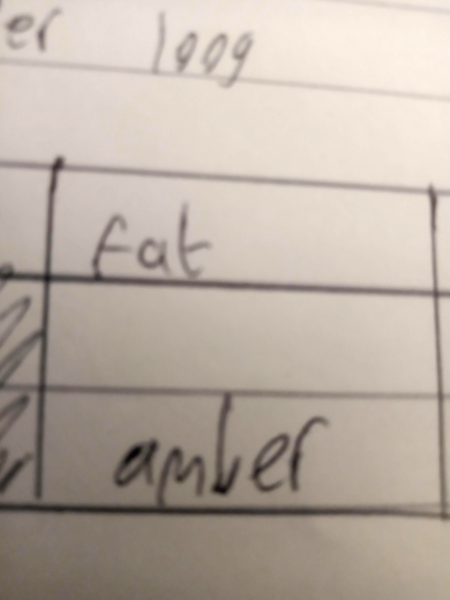 er 100g
fat
amber